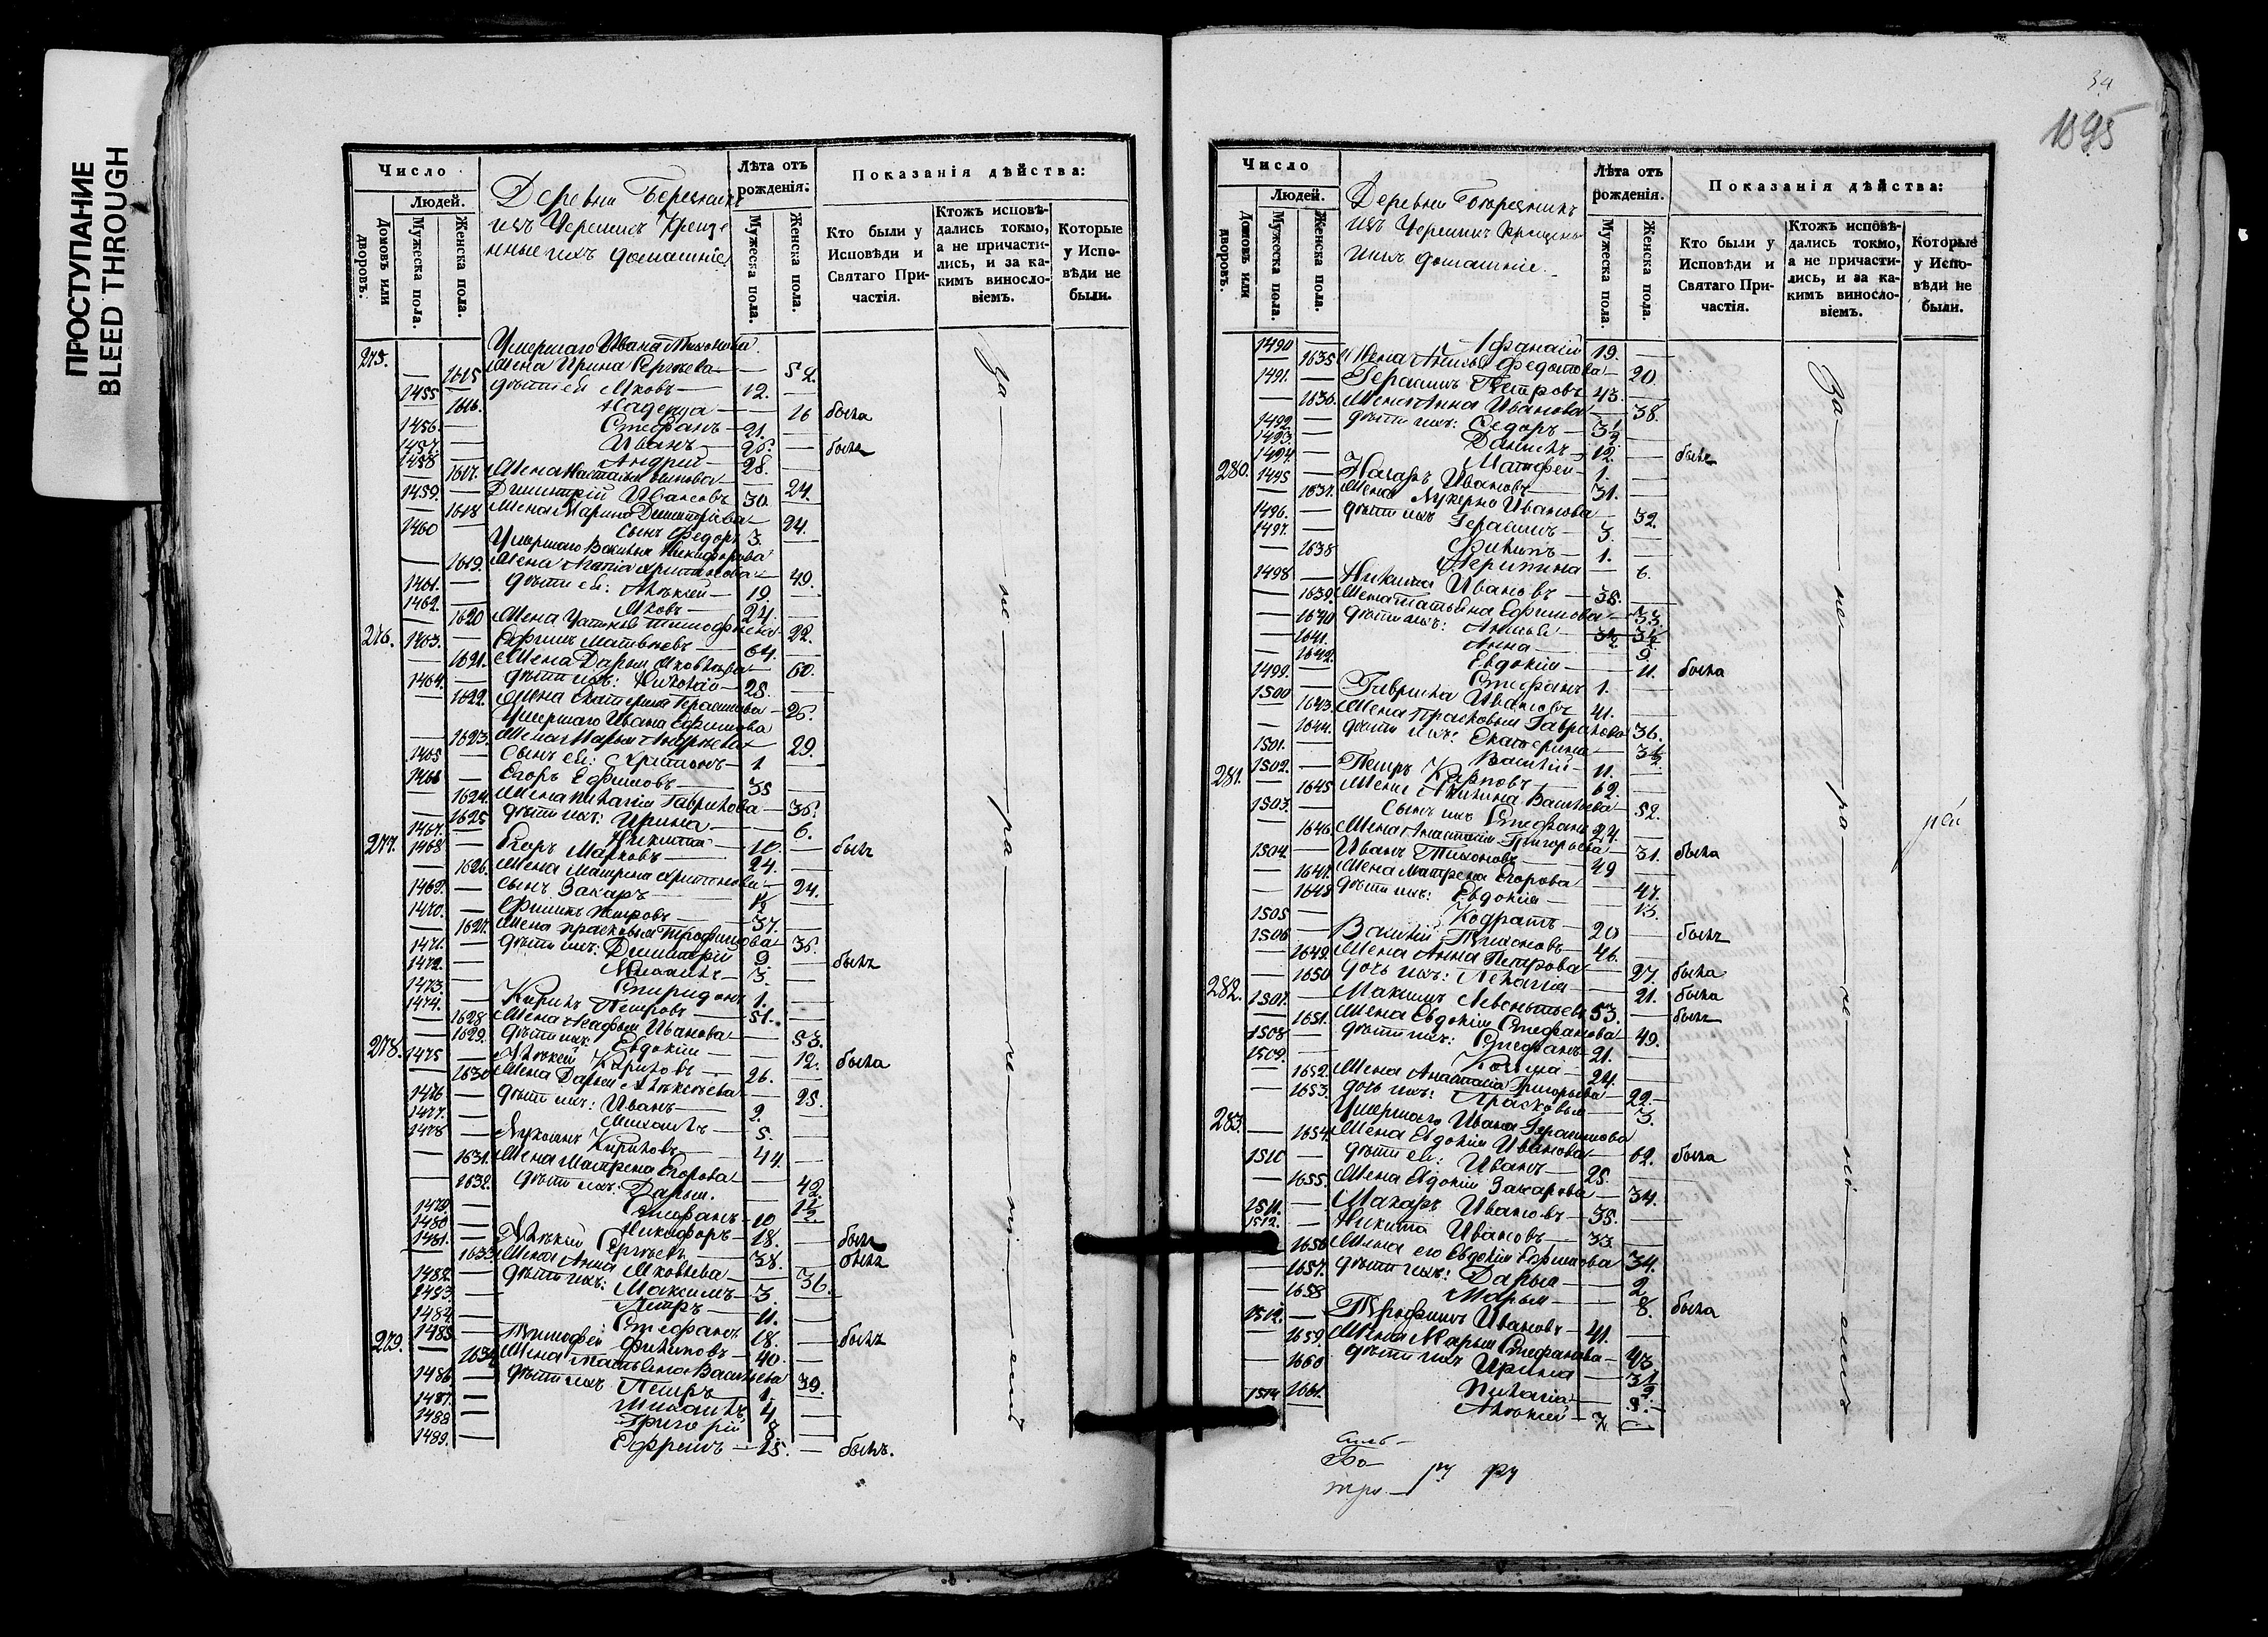 ПРОСТУПАНИЕ
BLEED THROUGH
34
1095
Число
Людей.
Домовъ или дворовъ.
Мужеска пола.
Женска пола.
Деревни
изъ Черемисъ Креще
нные ихъ домашніе
Лѣта отъ рожденія:
Мужеска пола.
Женска пола.
Показанія дѣйства:
Кто были у Исповѣди и Святаго При-
частія.
Ктожъ исповѣ-
дались токмо,
а не причасти-
лись, и за ка-
кимъ винослo-
віемъ.
Которые
у Испо-
вѣди не
были.
275. Умершаго Ивана Тихонова
— 1615 Жена Ирина Сергѣева — 52.
1455 — дѣти ей Яковъ 12. —
— 1616. Надежда — 26 была
1456. — Стефанъ 21. —
1457. — Иванъ 26. — былъ
1458 — Андрей 28. —
— 1617. Жена Наталья — 24.
1459. — Димитрій Ивановъ 30. —
— 1618 Жена Марина Димитріева — 24.
1460 — Сынъ Федоръ 3. —
Умершаго Василья Никифорова
— 1619. Жена Харитонова — 49.
1461. — дѣти ей: Алексей 19. —
1462. — Яковъ 24. —
— 1620 Жена Тимофѣева — 22.
276. 1463. — Ефимъ Матвѣевъ 64. —
— 1621. Жена Дарья Яковлева — 60.
1464. — дѣти ихъ: Николай 28. —
— 1622. Жена Екатерина Герасимова — 26.
Умершаго Ивана Ефимова
— 1623. Жена Марья Андрѣева — 29.
1465 — Сынъ ей: Харитонъ 1 —
1466 — Егоръ Ефимовъ 35 —
— 1624. Жена Пилагія Гаврилова — 36.
— 1625 дѣти ихъ: Ирина — 6.
1467. — Никита 10. — былъ
277. 1468 — Егоръ Марковъ 24. —
— 1626. Жена Матрена Харитонова — 24.
1469. — Сынъ Захаръ 1/2 —
1470. — Филипъ Петровъ 37. —
— 1627. Жена Прасковья Трофимова — 36.
1471. — дѣти ихъ: Димитрій 9 — былъ
1472. — Михаилъ 3. —
1473. — Спиридонъ 1. —
1474. — Кирилъ Петровъ 51. —
— 1628 Жена Агафья Иванова — 53.
— 1629. дѣти ихъ Евдокія — 12. была
278. 1475 — Алексей Кириловъ 26. —
— 1630 Жена Дарья Алексѣева — 25.
1476 — дѣти ихъ: Иванъ 2. —
1477. — Михаилъ 5. —
1478 — Лукоянъ Кириловъ 44. —
— 1631. Жена Матрена Егорова — 42.
— 1632. дѣти ихъ: Дарья. — 1 1/2.
1479 — Стефанъ 10 —
1480 — Никифоръ 18. — былъ
1481. — Алексей Сергѣевъ 38. — былъ
— 1633. Жена Анна Яковлева — 36.
1482. — дѣти ихъ: Максимъ 3. —
1483. — Петръ 11. —
1484. — Стефанъ 18. — былъ
279. 1485 — Тимофей Филиповъ 40. —
— 1634 Жена Татьяна Васильева — 39.
1486. — дѣти ихъ Петръ 1. —
1487. — Михаилъ 4 —
1488 — Григорій 8 —
1489. — Ефремъ 25. — былъ.
За не ра де ні емъ
Число
Людей.
Домовъ или дворовъ.
Мужеска пола.
Женска пола.
Деревни
изъ Черемисъ Крещены
ихъ домашніе.
Лѣта отъ рожденія.
Мужеска пола.
Женска пола.
Показанія дѣйства:
Кто были у Исповѣди и Святаго При-
частія.
Ктожъ исповѣ-
дались токмо,
а не причасти-
лись, и за ка-
кимъ винослo-
віемъ.
Которые
у Испо-
вѣди не
были.
1490 — Афанасій 19. —
— 1635 Жена Федотова — 20.
1491. — Герасимъ Петровъ 43. —
— 1636. Жена Анна Иванова — 38.
1492. — дѣти ихъ: Федоръ 3 1/2 —
1493. — Данилъ 12. — былъ
1494. — Матфей 1. —
280. 1495 — Назаръ Ивановъ 31. —
— 1637. Жена Лукерья Иванова — 32.
1496. — дѣти ихъ Герасимъ 3. —
1497. — Филипъ 1. —
— 1638 — 6.
1498 — Никита Ивановъ 38. —
— 1639. Жена Татьяна Ефимова — 33.
— 1640 дѣти ихъ: — 3 1/2
— 1641. Анна — 9.
— 1642. Евдокія — 11. была
1499. — Стефанъ 1. —
1500 — Гаврила Ивановъ 41. —
— 1643. Жена Прасковья Гаврилова — 36.
— 1644. дѣти ихъ: Екатерина — 3 1/2
1501. — Василій 11. —
281. 1502. — Петръ Карповъ 62. —
— 1645 Жена Акилина Васильева — 52.
1503. — Сынъ ихъ Стефанъ 24. —
— 1646 Жена Анастасія Григорьева — 31. была
1504. — Иванъ Тихоновъ 49 —
— 1647. Жена Матрена Егорова — 47.
— 1648 дѣти ихъ: Евдокія — 13.
1505 — Кодратъ 20 — былъ
1506 — Василій Тихоновъ 46. —
— 1649. Жена Анна Петрова — 27. была
— 1650 дочь ихъ: Пелагія — 21. была
282. 1507. — Максимъ Левонтьевъ 53. — былъ
— 1651. Жена Евдокія Стефанова — 49.
1508 — дѣти ихъ: Стефанъ 21. —
1509. — Козма 24. —
— 1652. Жена Анастасія Григорьева — 22.
— 1653. дочь ихъ: Прасковья — 3.
283. Умершаго Ивана Герасимова
— 1654. Жена Евдокія Иванова — 62. была
1510 — дѣти ей: Иванъ 25. —
— 1655. Жена Евдокія Захарова — 34.
1511. — Макаръ Ивановъ 35. —
1512. — Никита Ивановъ 33. —
1656 Жена его Евдокія Ефимова 34.
— 1657. дѣти ихъ: Дарья — 2
— 1658 Марья — 8. была
1512. — Трофимъ Ивановъ 41. —
— 1659. Жена Марья Стефанова — 43.
— 1660 дѣти ихъ Ирина — 3 1/2
1661. Пилагія — 8.
1514 — Алексей 7 —
За не ра де ні емъ
рей